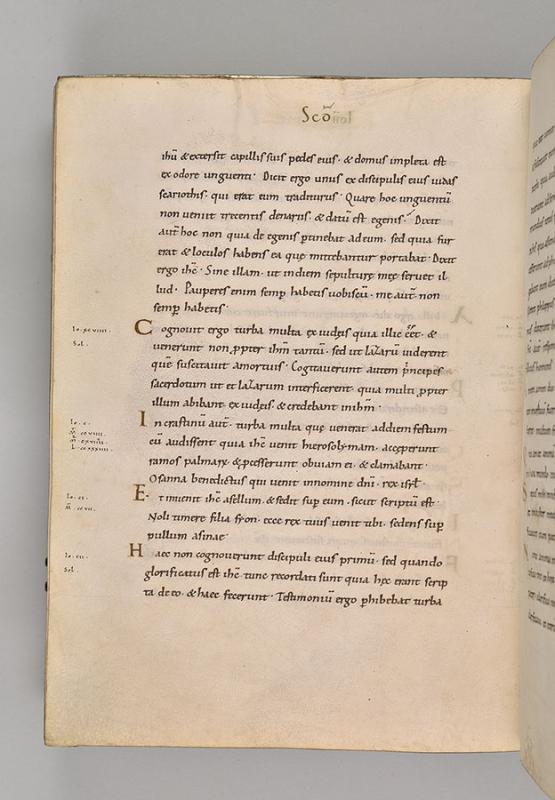 Scō
ihū & extersit capillis suis pedes eius · & domus impleta est
ex odore unguenti · Dicit ergo unus ex discipulis eius iudas
scariothis · qui erat eum traditurus · Quare hoc unguentū
non veniit trecentis denariis · & datū est egenis · Dixit
aut hoc non quia de egenis ptinebat ad eum · sed quia fur
erat & loculos habens ea quę mittebantur portabat · Dixit
ergo ihc̄ · Sine illam · ut in diem sepulturę meę servet il
lud · Pauperes enim semp habetis vobiscū · me aut non
semp habetis ·
Cognovit ergo turba multa ex iudęis quia illic eēt · &
venerunt non ppter ihm̄ tantū · sed ut lazarū viderent
quē suscitavit a mortuis · Cogitaverunt autem principes
sacerdotum ut et lazarum interficerent · quia multi ppter
illum abibant ex iudęis · & credebant in ihm̄ ·
In crastinū aut · turba multa quę venerat ad diem festum
cū audissent quia ihc̄ venit hierosolymam · acceperunt
ramos palmarum & pcesserunt obviam ei · & clamabant ·
Osanna benedictus qui venit in nomine dnī · rex isrl̄ ·
Et invenit ihc̄ asellum · & sedit sup eum · sicut scriptū est ·
Noli timere filia syon · ecce rex tuus venit tibi · sedens sup
pullum asinae ·
Haec non cognoverunt discipuli eius primū · sed quando
glorificatus est ihc̄ · tunc recordati sunt quia hęc erant scrip
ta de eo · & haec fecerunt · Testimoniū ergo phibebat turba